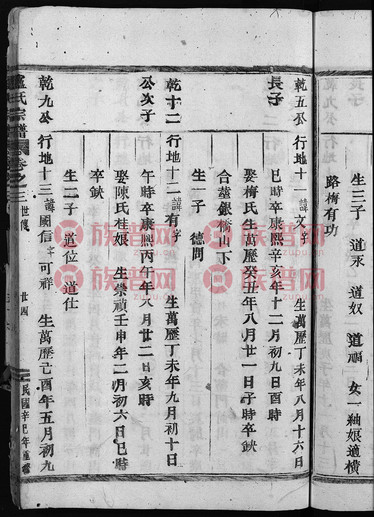 生三子 道永 道奴 道順 女一紬娘適橫
路梅有功
乾五公 行地十一 諱文 字 生萬歷丁未年八月十六日
長子
巳時卒康熙辛亥年十二月初九日酉時
娶梅氏生萬歷癸丑年八月廿一日子時卒缺
合塟銀 山下
生一子 德問
乾十二 行地十二 諱有 字 生萬歷丁未年九月初十日
公次子
午時卒康熙丙午年八月廿二日亥時
娶陳氏桂娘 生崇禎壬申年二月初六日巳時
卒缺
生二子 道位 道仕
乾九公 行地十三 諱國信 字可祥 生萬歷己酉年五月初九
盧氏宗譜 卷之三 世傳 廿四 民國辛巳年重修
族譜网
zupu.cn